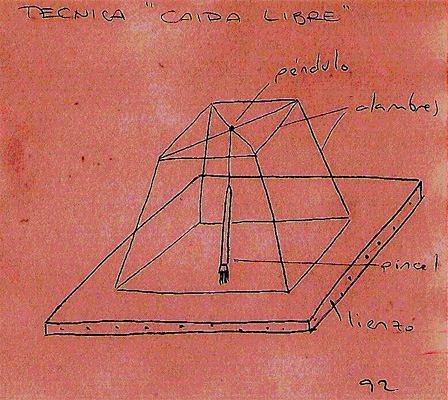 TECNICA "CAIDA LIBRE"
péndulo
alambres
pincel
lienzo
92